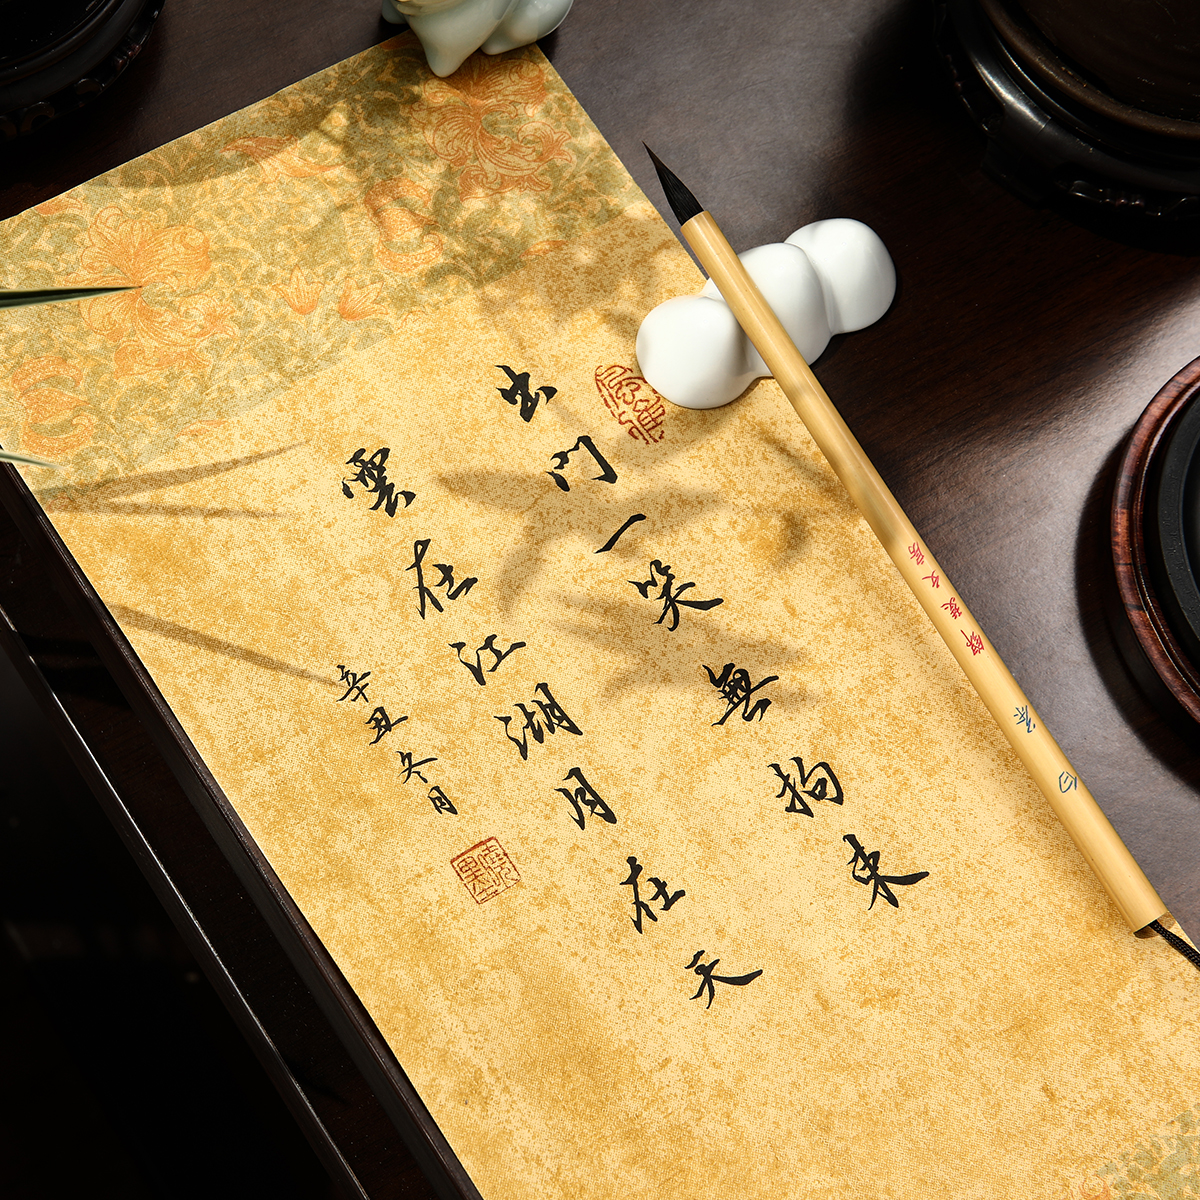 出門一笑無拘束
雲在江湖月在天
辛丑冬月